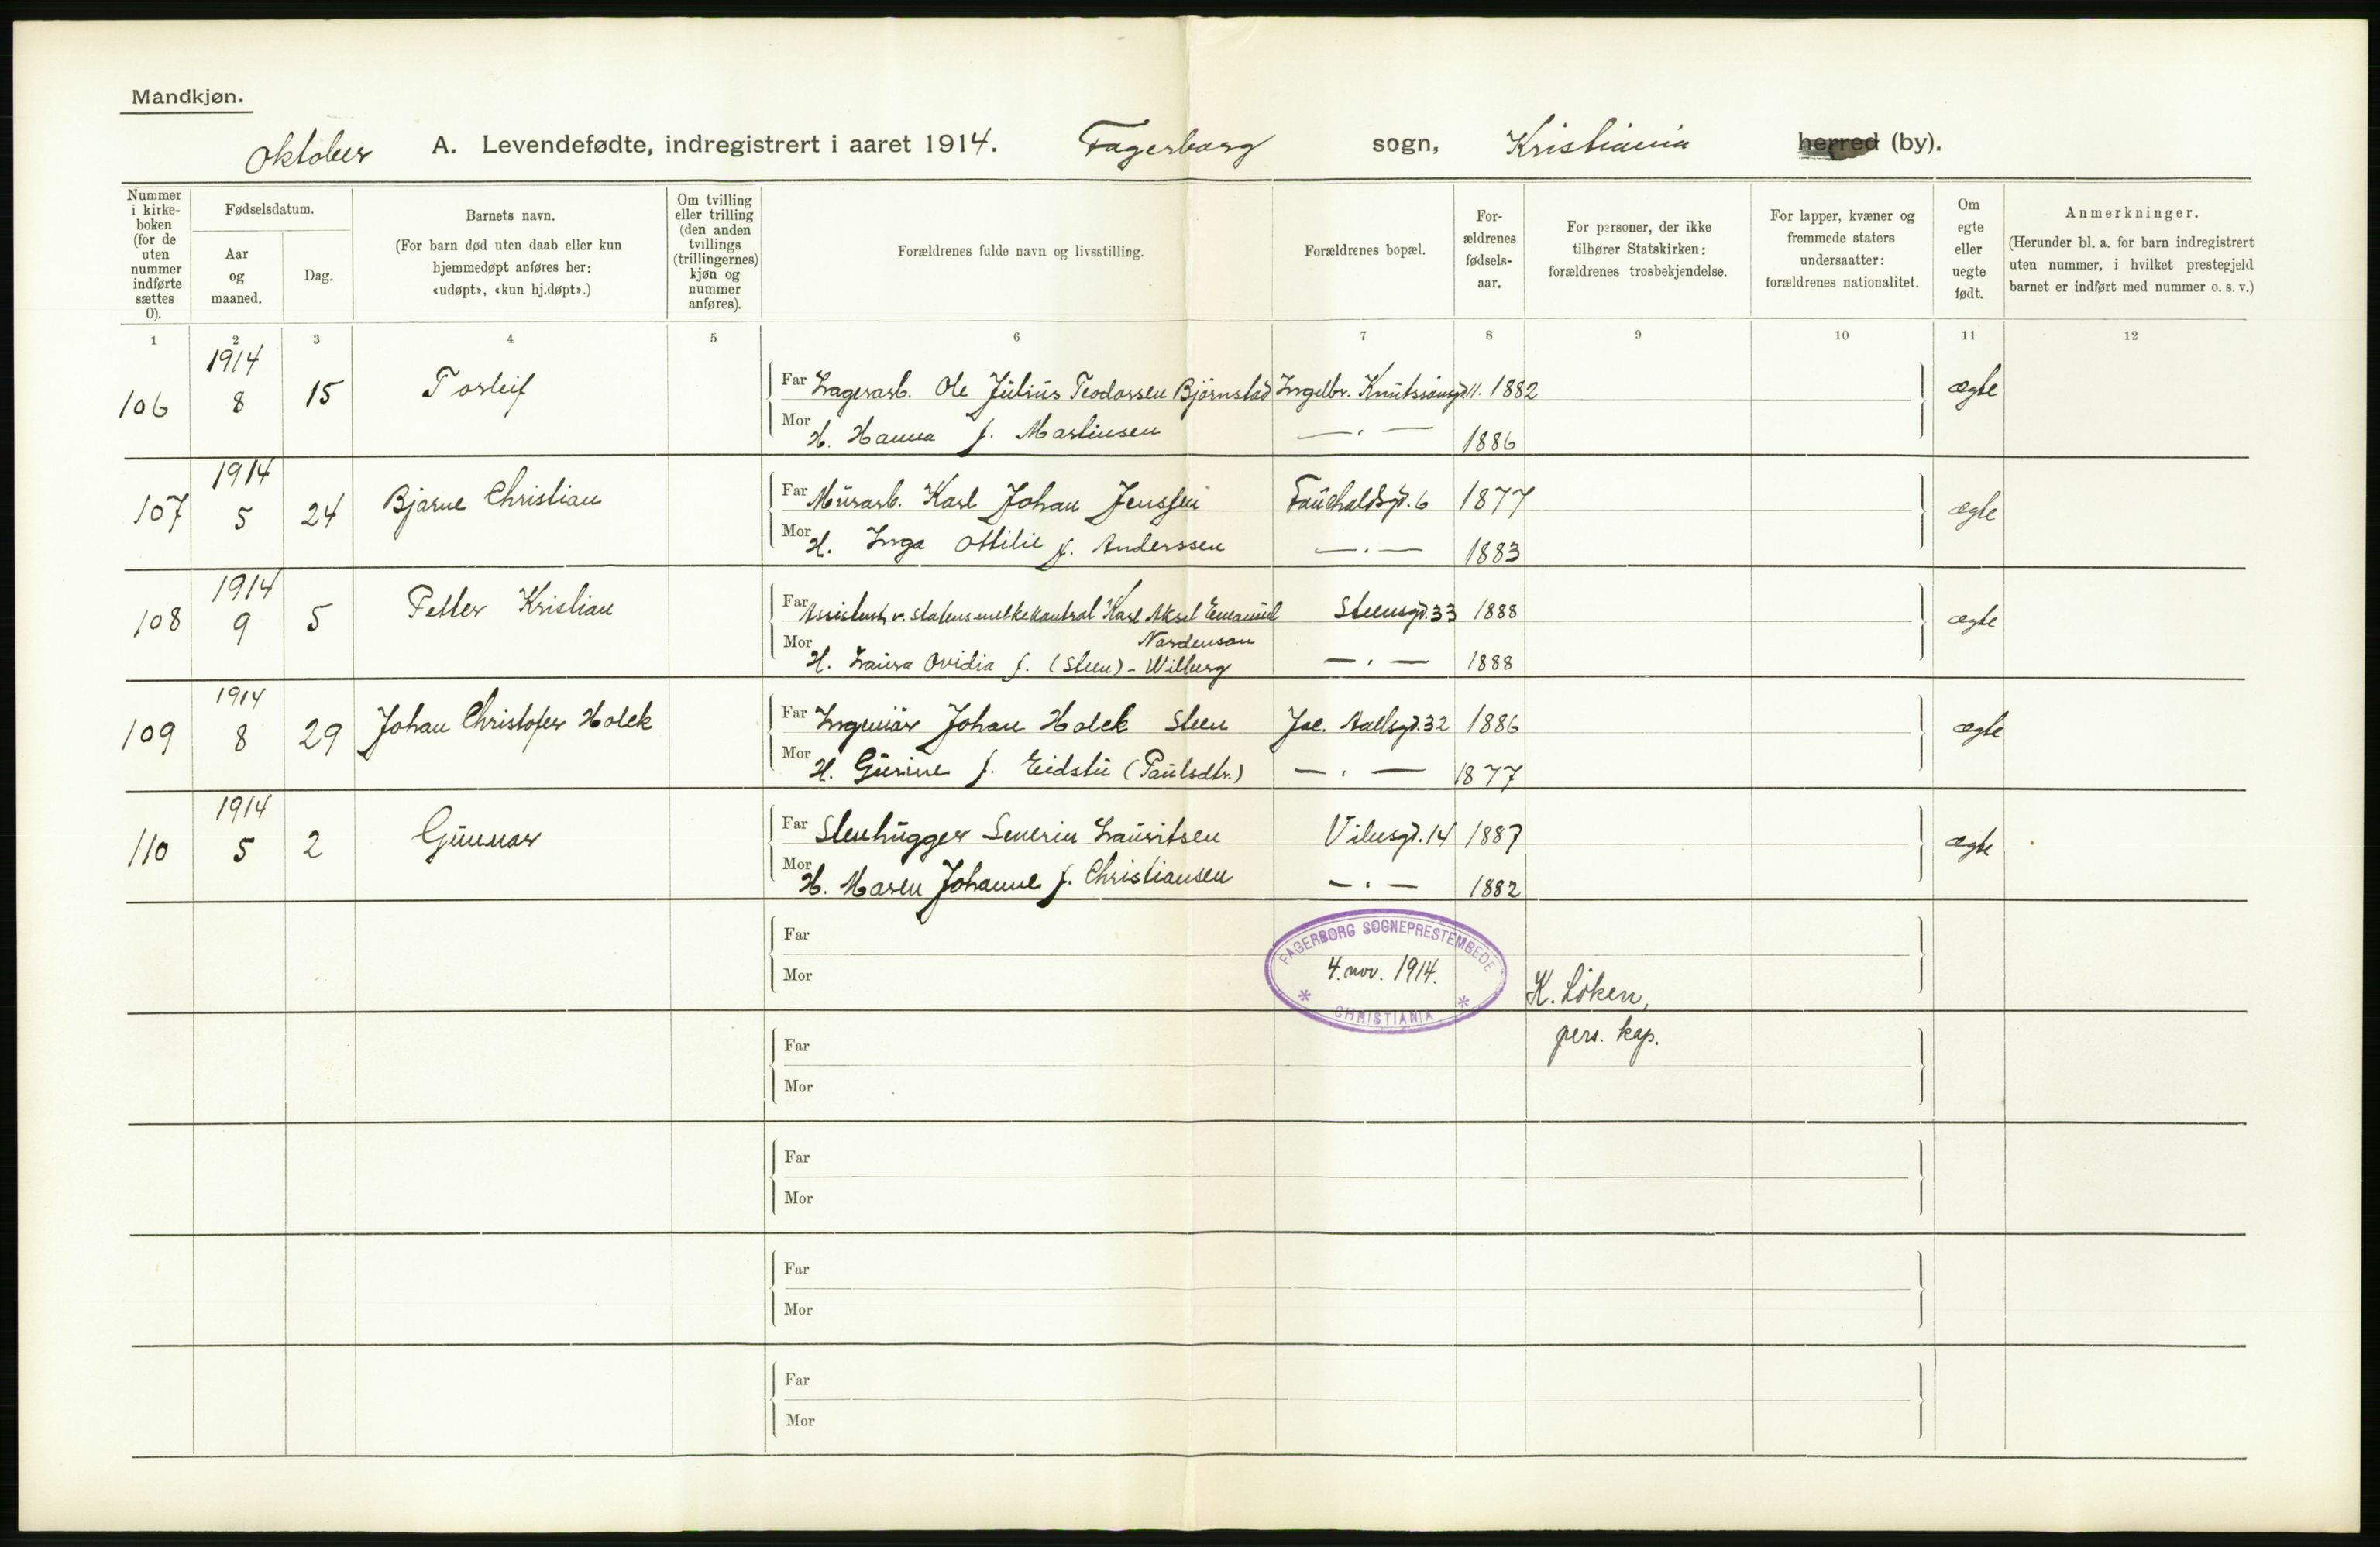 Mandkjøn.
Oktober A. Levendefødte, indregistrert i aaret 1914. Fagerborg sogn, Kristiania herred (by).
Nummer i kirke-boken (for de uten nummer indførte sættes 0).
Fødselsdatum.
Aar og maaned.
Dag.
Barnets navn.
(For barn død uten daab eller kun hjemmedøpt anføres her: «udøpt», «kun hj.døpt».)
Om tvilling eller trilling (den anden tvillings (trillingernes) kjøn og nummer anføres).
Forældrenes fulde navn og livsstilling.
Forældrenes bopæl.
For-ældrenes fødsels-aar.
For personer, der ikke tilhører Statskirken: forældrenes trosbekjendelse.
For lapper, kvæner og fremmede staters undersaatter: forældrenes nationalitet.
Om egte eller uegte født.
Anmerkninger.
(Herunder bl. a. for barn indregistrert uten nummer, i hvilket prestegjeld barnet er indført med nummer o. s. v.)
1 2 3 4 5 6 7 8 9 10 11 12
1914
106 8 15 Torleif Far Lagerarb. Ole Julius Teodorsen Bjørnstad Ingelbr. Knutssønsgd. 11. 1882 ægte
Mor H. Hanna f. Martinsen —.— 1886
1914
107 5 24 Bjarne Christian Far Murarb. Karl Johan Jenssen Fauchaldsgd. 6 1877 ægte
Mor H. Inga Ottilie f. Anderssen —.— 1883
1914
108 9 5 Petter Kristian Far Assistent v. Statens melkekontrol Karl Aksel Emanuel Steensgd. 33 1888 ægte
Nordenson
Mor H. Laura Ovidia f. (Steen) - Wilberg —.— 1888
1914
109 8 29 Johan Christofer Holck Far Ingeniør Johan Holck Steen Jac. Aallsgd. 32 1886 ægte
Mor H. Gurine f. Eidstu (Paulsdtr.) —.— 1877
1914
110 5 2 Gunnar Far Stenhugger Severin Lauritsen Vibesgd. 14 1887 ægte
Mor H. Maren Johanne f. Christiansen —.— 1882
Far
Mor
FAGERBORG SOGNEPRESTEMBEDE
4. nov. 1914.
* CHRISTIANIA *
K. Löken,
pers. kap.
Far
Mor
Far
Mor
Far
Mor
Far
Mor